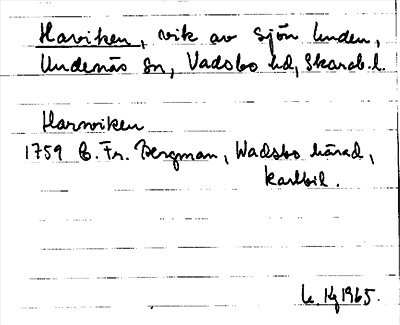 Harviken, vik av sjön Unden,
Undenäs sn, Vadsbo hd, Skarab.l.
Harnviken
1759 C. Fr. Bergman, Wadsbo härad,
kartbil.
1965.